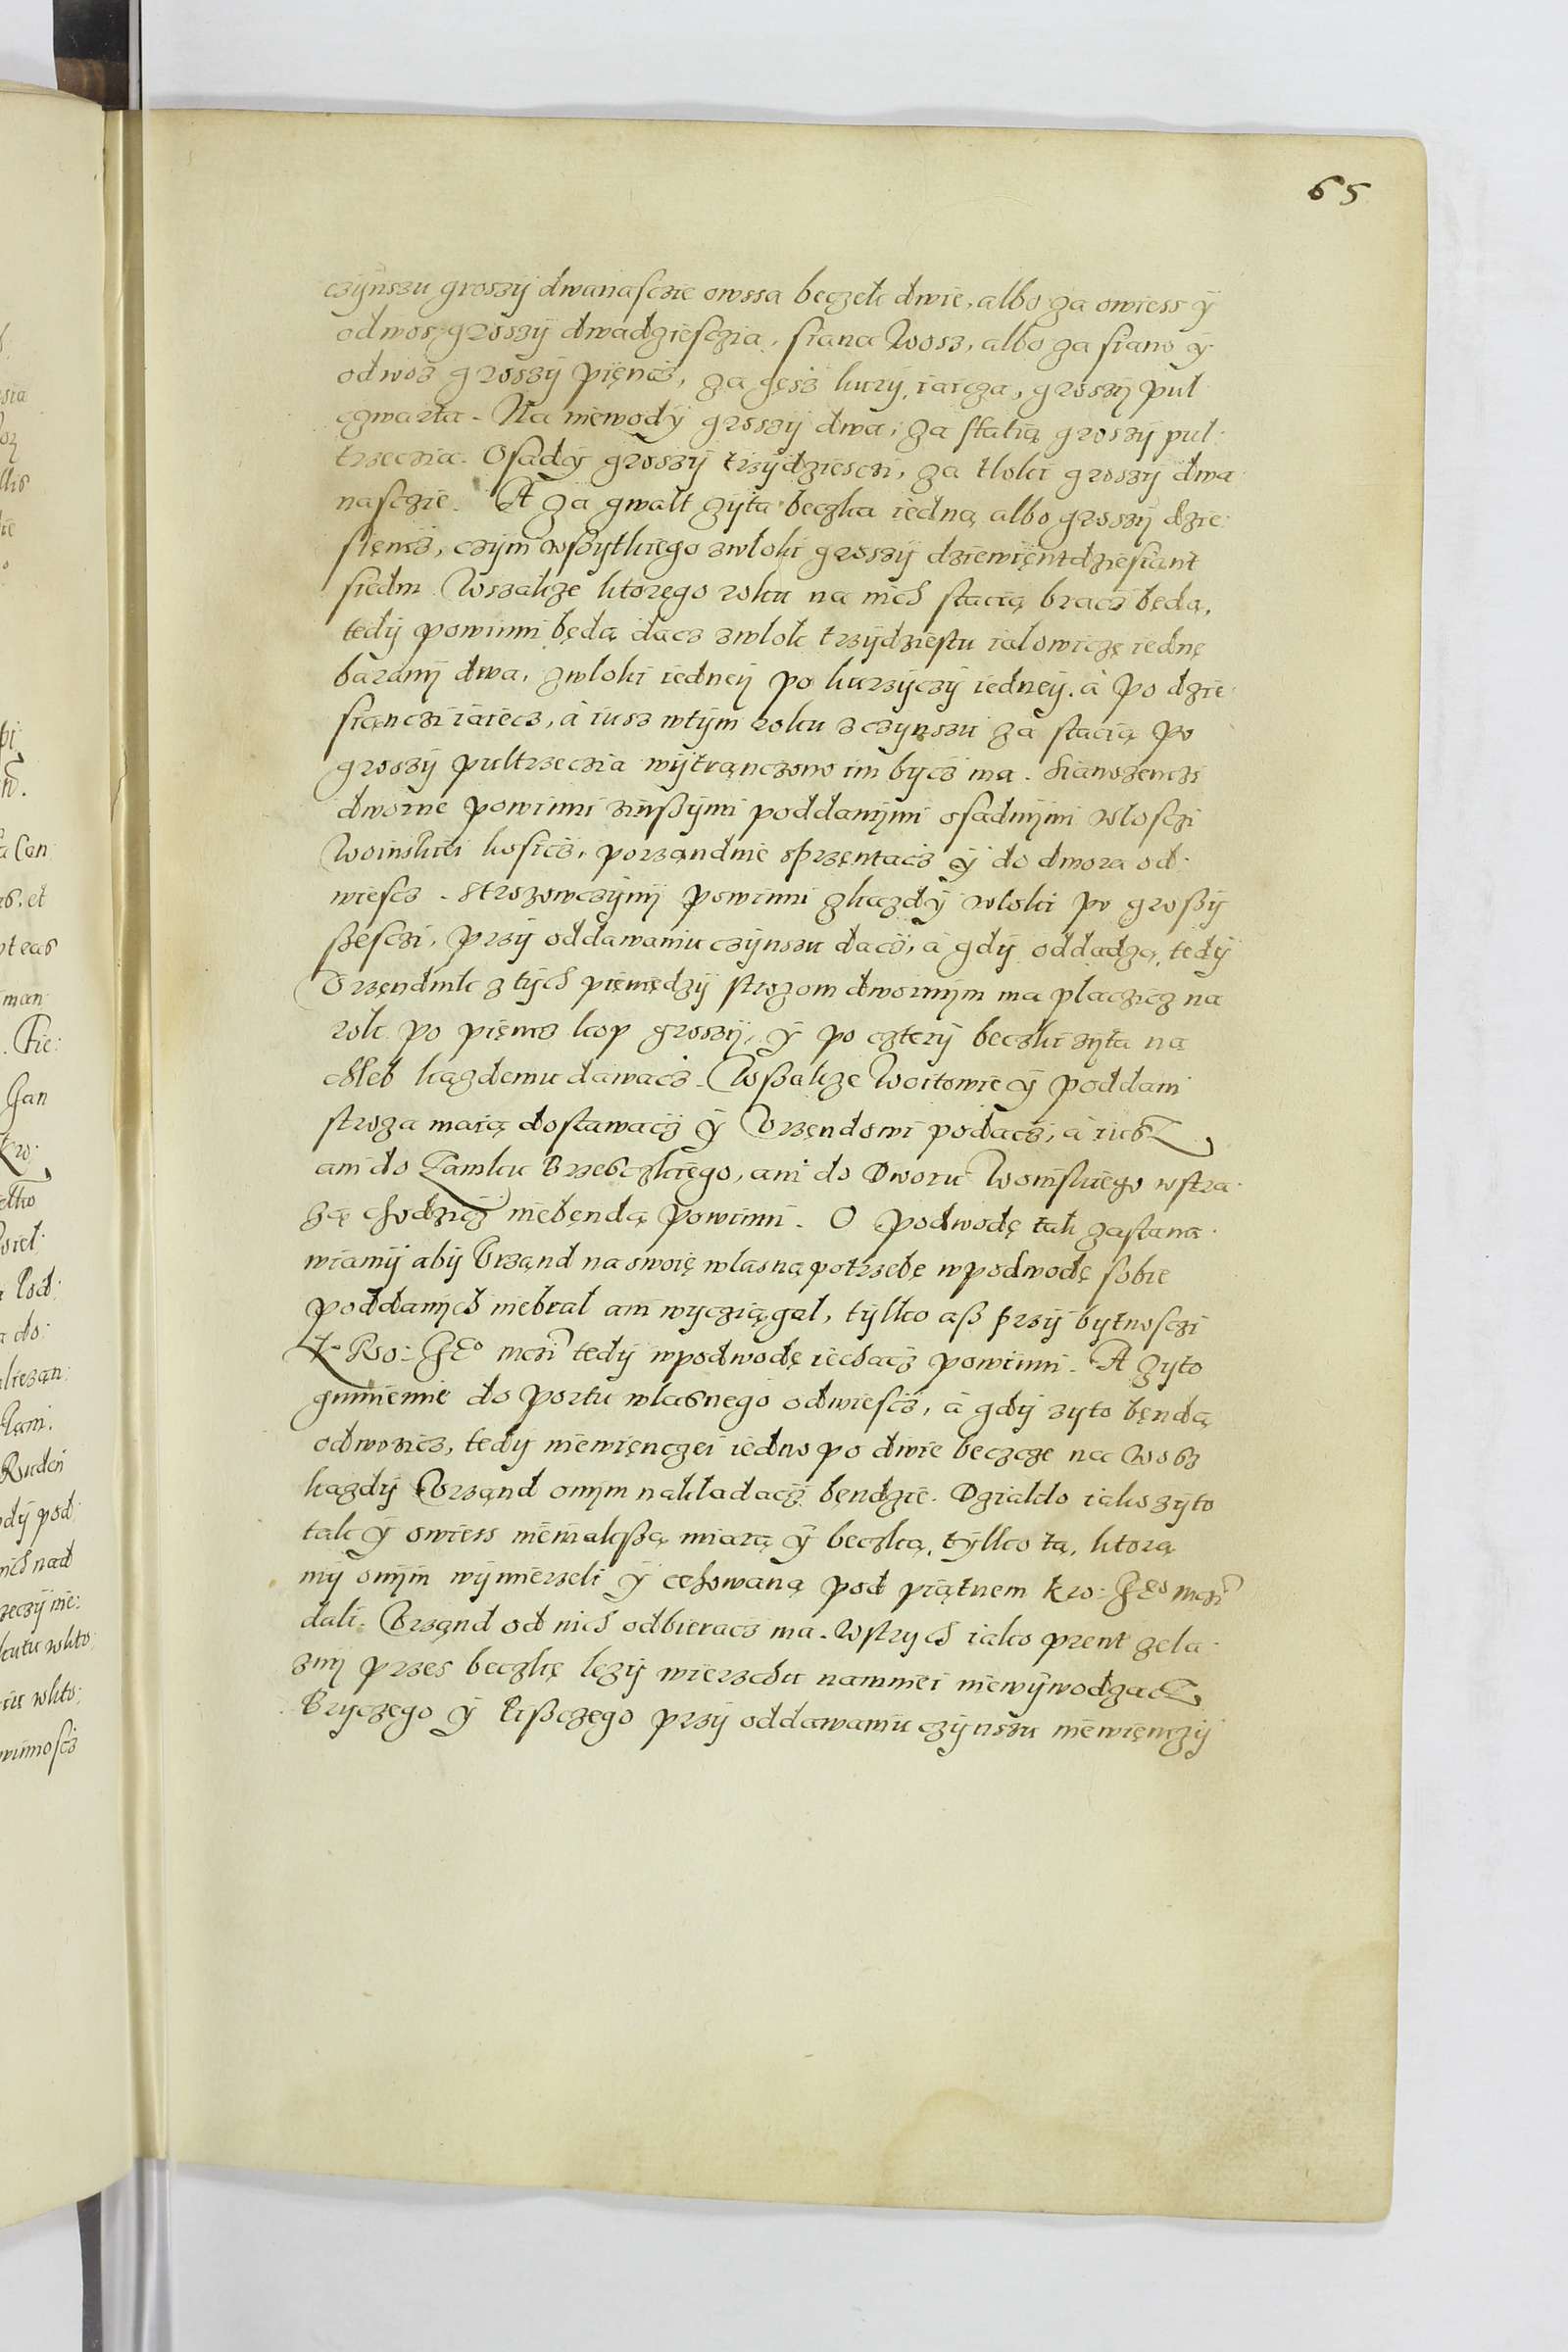 65
czÿnszu groszÿ dwanasczie owssa beczek dwie, albo za owiess ÿ
odwos groszÿ dwadziesczia, siana Wosz, albo za siano ÿ
odwoz groszÿ pięncz, za gęsz kurÿ, iaicza, groszÿ puł
czwarta. Na niewodÿ groszÿ dwa, za statią groszÿ puł:
trzeczia. Osadÿ groszÿ trzÿdziesczi, za tloki groszÿ dwa
nasczie. A za gwałt zÿta beczka iedna albo groszÿ dzie:
sięncz, czÿni wszÿtkiego zwłoki groszÿ dziewięntdziesiant
siedm. Wszakze ktorego roku na nich stacią bracz będą,
tedÿ powinni będą dacz zwłok trzÿdziestu iałowiczę iednę
baranÿ dwa, zwłoki iedneÿ po kurzÿczÿ iedneÿ. à po dzie:
siąnczi iaiecz, à iusz wtÿm roku zczÿnszu za stacią po
groszÿ pułtrzeczia wÿtrąnczono im bÿcz ma. Sianozenczi
dworne powinni zinszÿmi poddanÿmi osadnÿmi włosczi
Woinskiei kosicz, porządnie sprzęntacz ÿ do dwora od:
wiescz. Strozowczÿznÿ powinni zkazdÿ włoki po groszÿ
szesczi, przÿ oddawaniu czÿnszu dacz, à gdÿ oddadzą, tedÿ
Vrzędnik z tÿch pięnędzÿ strozom dwornÿm ma płaczicz na
rok po pięncz kop groszÿ, ÿ po czterÿ beczki zÿta na
chleb kazdemu dawacz. Wszakze Woitowie ÿ poddani
stroza maią dostawacz ÿ Vrzędowi podacz, à iusz
ani do Zamku Brzesczkiego, ani do Dworu Woinskiego wstra:
zą chodzicz niebęndą powinni. O podwodę tak zastana:
wiamÿ abÿ Vrząnd na swoię własną potrzebę wpodwodę sobie
poddanÿch niebrał ani wyczięgał, tÿlko asz przÿ bytnosczi
K Kro: Jᴱᵒ mczi tedÿ wpodwodę iechacz powinni. A zyto
gumienne do portu własnego odwiescz, à gdÿ zyto bęndą
odwozicz, tedÿ niewięnczei iedno po dwie beczcze na Wosz
kazdÿ Vrząnd onÿm nakładacz bęndzie. Dziakło iako zÿto
tak ÿ owiess nieinakszą miarą ÿ beczką, tÿlko tą, ktorą
mÿ onÿm wÿmierzeli ÿ cechowaną pod piątnem Kro: Jᴱᵒ mczi
dali. Vrząnd od nich odbieracz ma. Wstrych iako prent zela:
znÿ przes beczkę lęzÿ wierzchu nammiei niewÿwodzacz
Brÿczego ÿ Liszczego przÿ oddawaniu czÿnszu niewięnczÿ